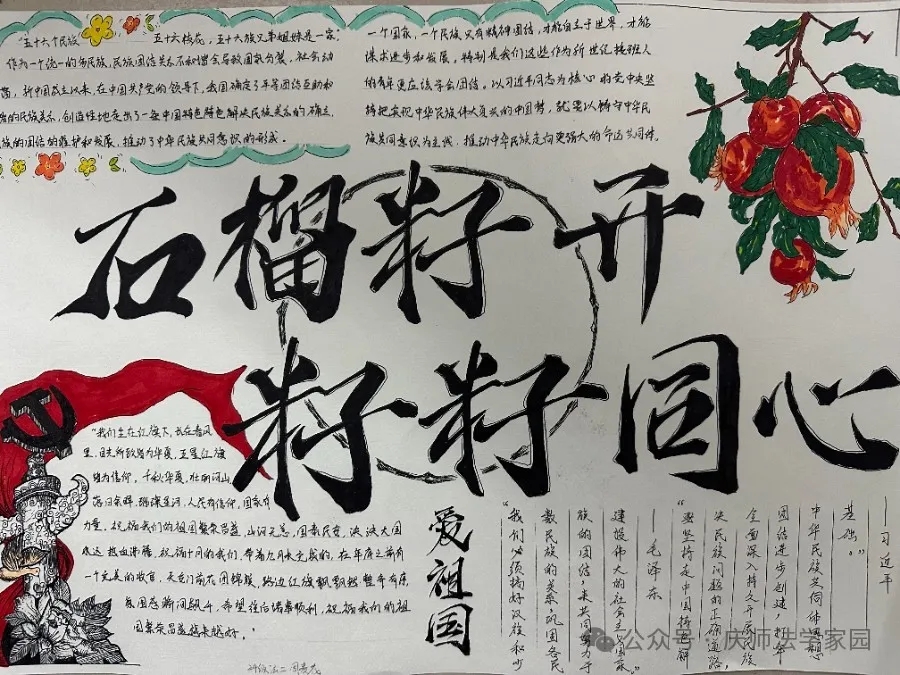 "五十六个民族 五十六枝花,五十六族兄弟姐妹是一家"
作为一个统一的多民族,民族团结关系不和谐会导致国家分裂,社会动
荡,新中国成立以来,在中国共产党的领导下,我国确定了平等团结互助和
谐的民族关系,创造性地走出了一条中国特色解决民族关系的确立,
族的团结的维护和发展,推动了中华民族共同意识的形成。
一个国家,一个民族只有精神团结,才能自立于世界,才能
谋求进步和发展。特别是我们这些作为新世纪接班人
的青年更应该学会团结。以习近平同志为核心的党中央坚
持把实现中华民族伟大复兴的中国梦,就要以铸牢中华民
族共同意识为主线,推动中华民族走向更强大的命运共同体。
石榴籽开
籽籽同心
"我们生在红旗下,长在春风
里,目光所致皆为华夏,五星红旗
皆为信仰。千秋华夏,壮丽河山
人民有信仰,国家有
力量,祝福我们的祖国繁荣昌盛,山河无恙,国泰民安,泱泱大国
一个完美的收官,天安门前花团锦簇,路边红旗飘飘
希望往后诸事顺利,祝福我们的祖
国繁荣昌盛越来越好。"
爱祖国
——习近平
基础。"
中华民族共同体思想
团结进步创建,打牢
全面深入持久开展民族
决民族问题的正确道路,
"要坚持走中国特色解
——毛泽东
建设伟大的社会主义国家。"
族的团结,来共同努力于
数民族的关系,巩固各民
"我们必须搞好汉族和少
公众号·庆师法学家园